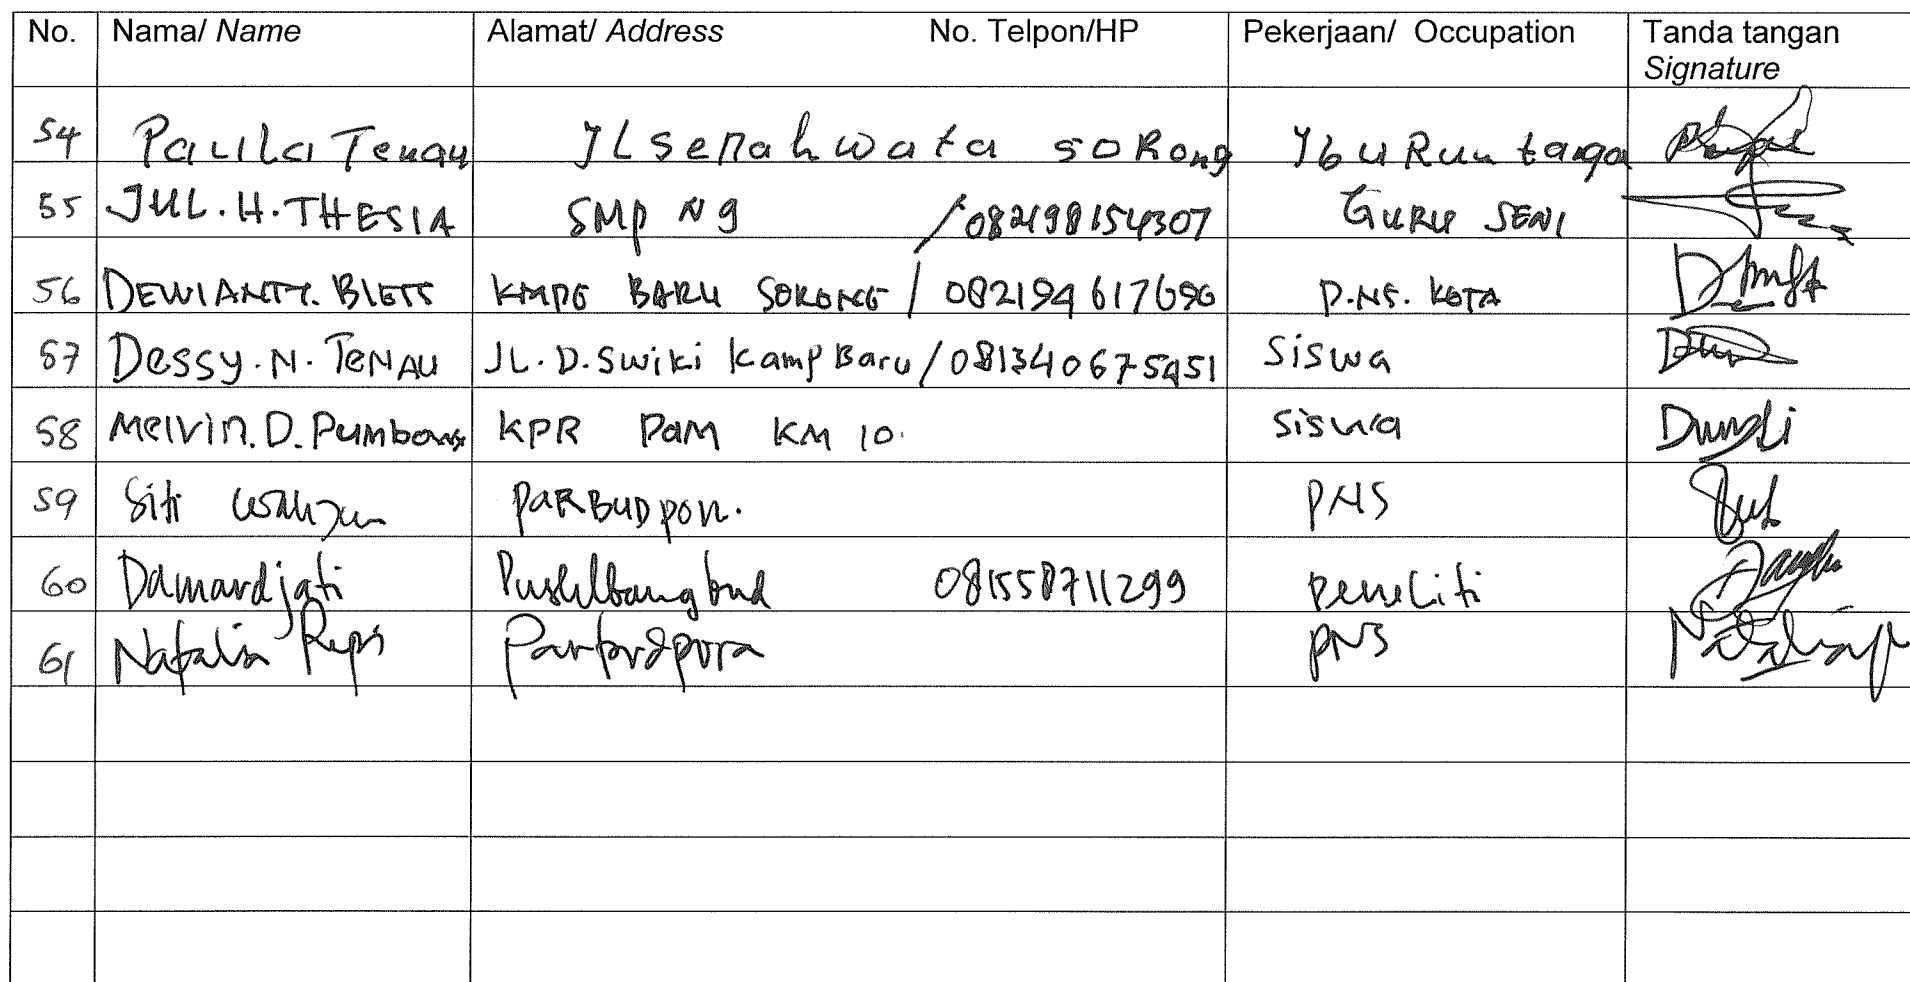 No. Nama/ Name Alamat/ Address No. Telpon/HP Pekerjaan/ Occupation Tanda tangan
Signature
54 Paulla Tenau JL Senahwata soRong Ibu Run tanga
55 JUL.H.THESIA SMP N 9 /082198154307 GURU SENI
56 DEWIANTY. BLETS KMPG BARU SORONG / 082194617696 P.NS. KOTA
57 Dessy.N.TENAU JL.D.Swiki Kamp Baru/081340675951 Siswa
58 Melvin.D.Pumbong KPR PAM KM 10. Siswa
59 Siti PARBUDPOR. PNS
60 Damardjati Puslitbangbud 081558711299 peneliti
61 Natalia Parbudpora PNS